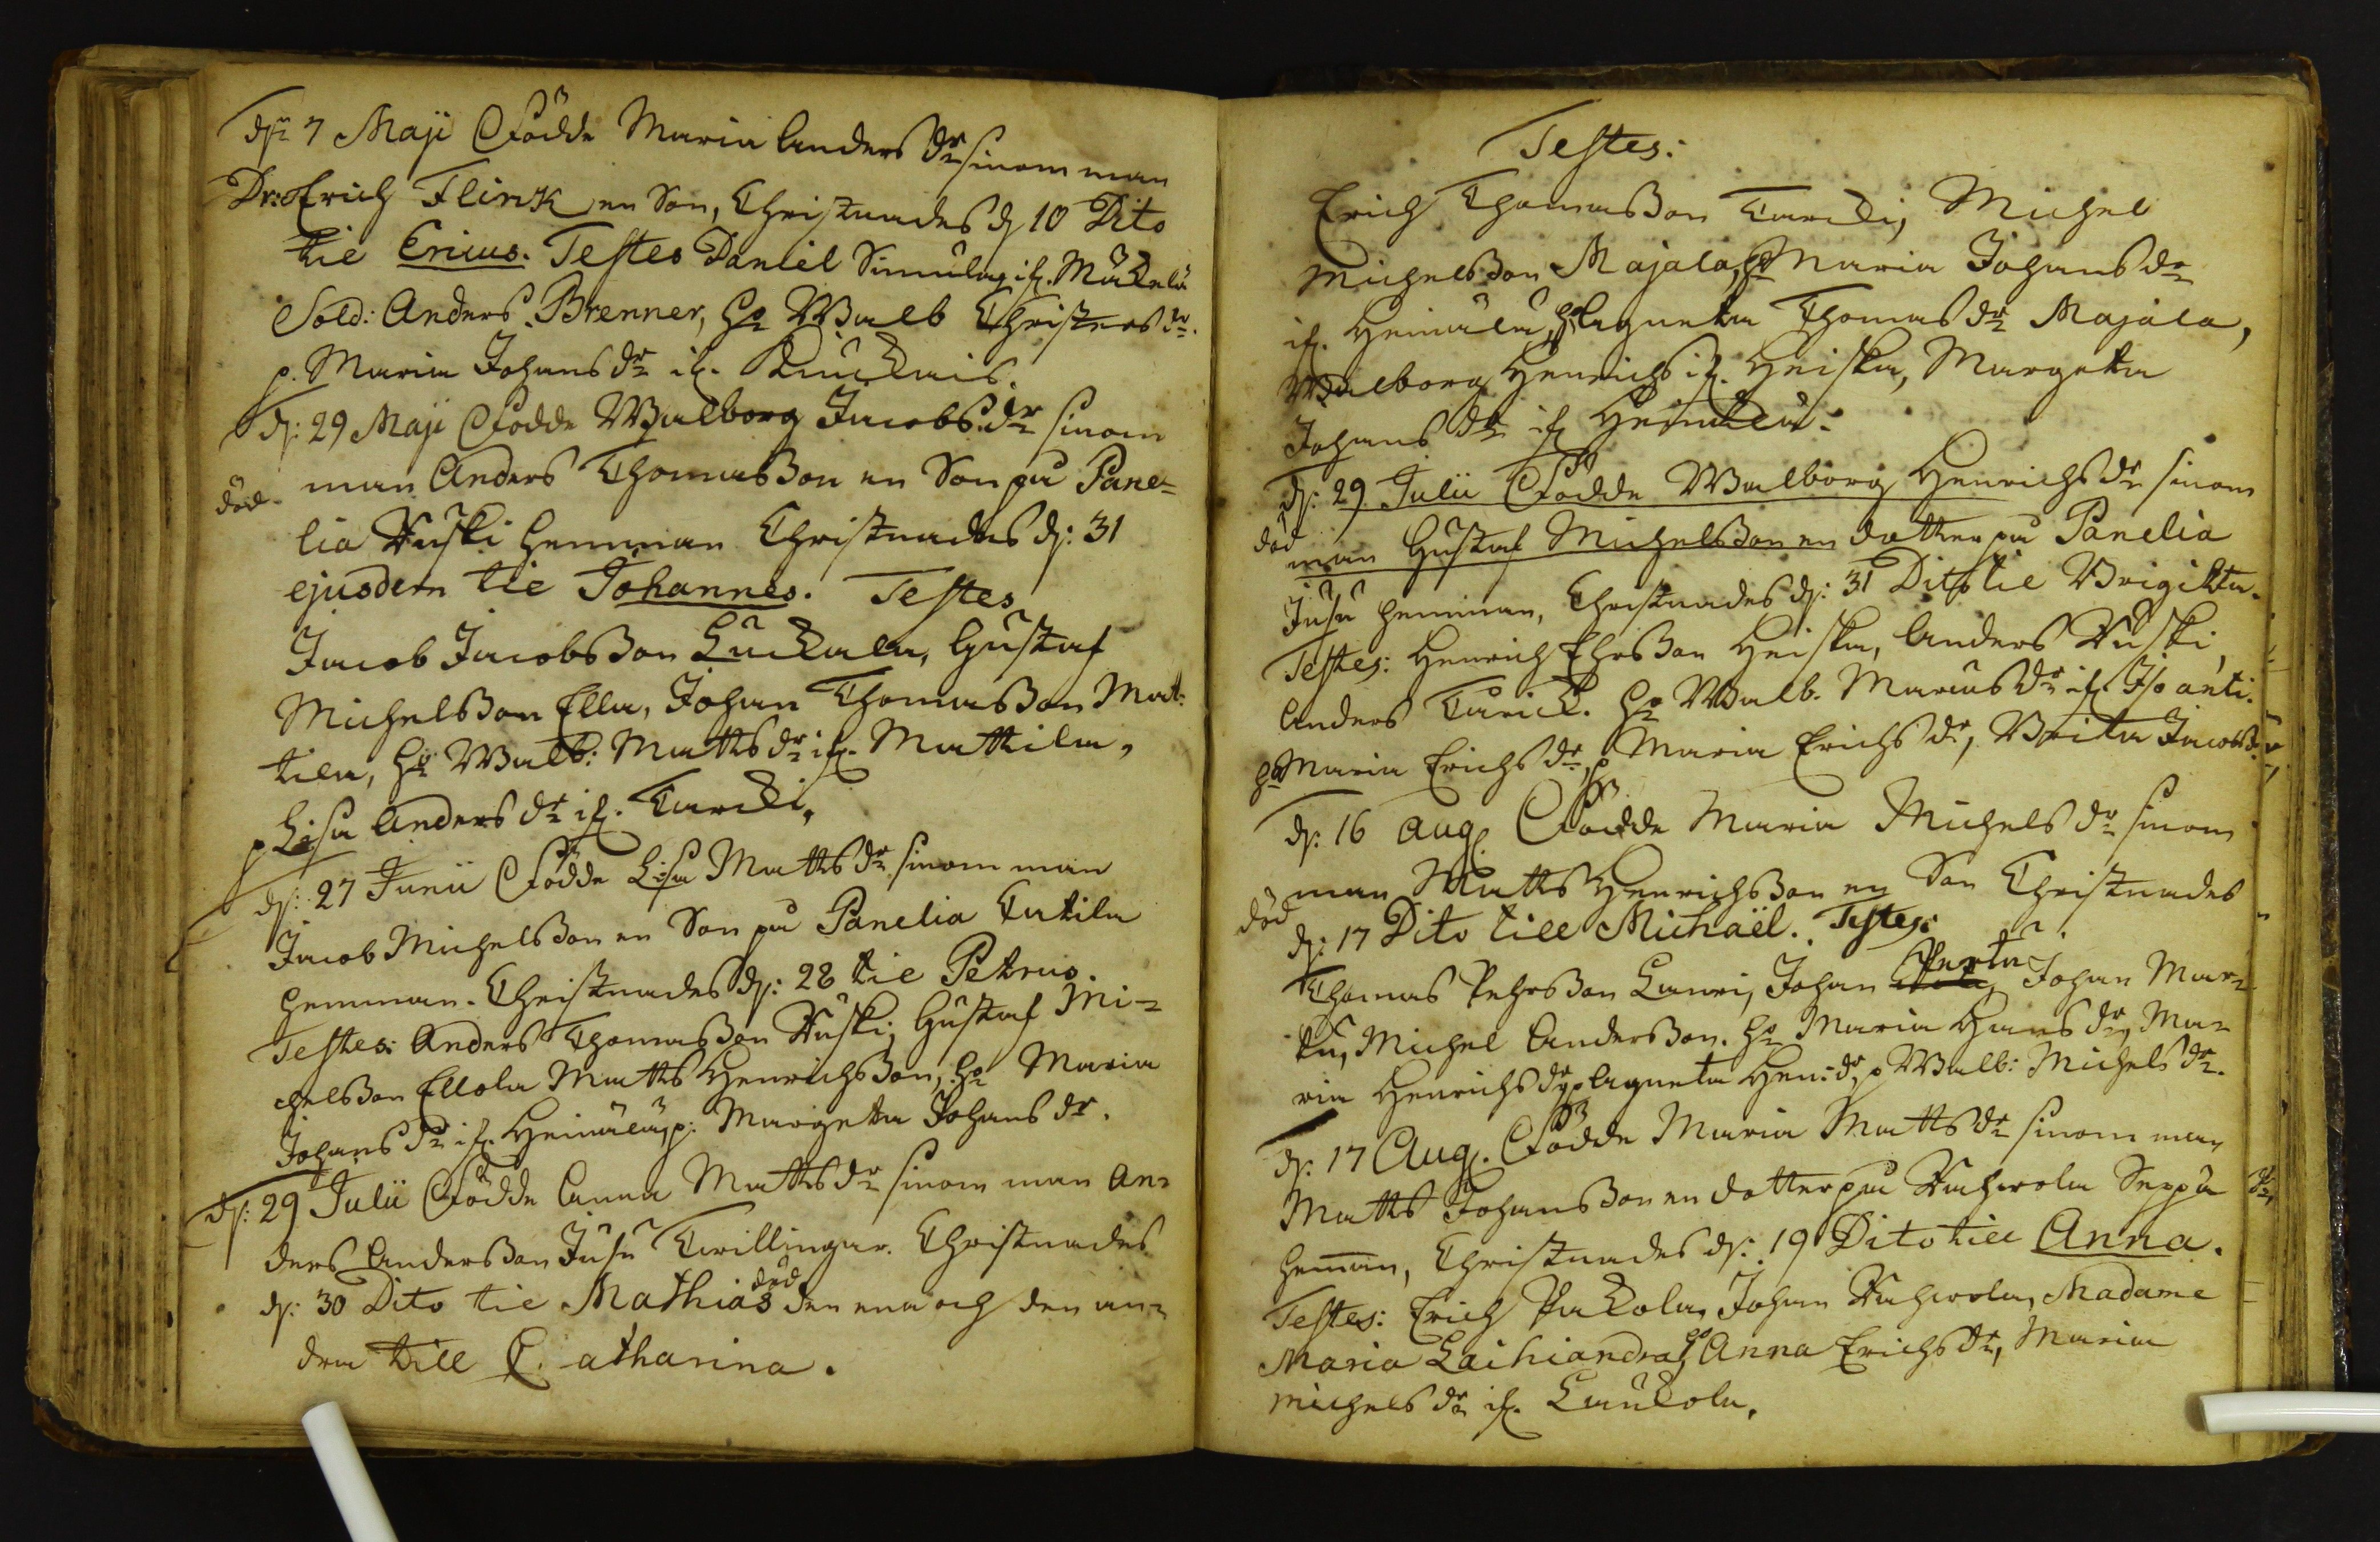 d: 7 Maji Födde Maria Anders dr sinom man
Dr: Erich Flink en Son, Christnades d 10 Dito
till Ericus. Testes Daniel Simula if. Mäkelä
Sold: Anders Brenner, ho Walb Christers dr.
p. Maria Johans dr if. Knuckais.
d: 29 Maji Födde Walborg Jacobs dr sinom
död man Anders Thomasson en Son på Pane-
lia Uuski hemman Christnades d: 31
ejusdem till Johannes. Testes
Jacob Jacobsson Luckala, Gustaf
Michelsson Ella, Johan Thomasson Mat-
tila, ho Walb: Matts dr if. Mattila,
p Lisa Anders dr if. Tarcki,
d: 27 Junii Födde Lisa Matts dr sinom man
Jacob Michelsson en Son på Panelia Tutila
hemman. Christnades d: 28 till Petrus.
Testes: Anders Thomasson Uuski, Gustaf Mi-
chelsson Ellola Matts Henrichsson, ho Maria
Johans dr if. Heinälä, p: Margeta Johans dr.
d: 29 Julii Födde Anna Matts dr sinom man An-
ders Andersson Jusu Twillingar. Christnades
död
d: 30 Dito till Mathias den ena och den an-
dra till Catharina.
Testes:
Erich Thomasson Tarcki, Michel
Michelsson Majala, ho Maria Johans dr
if. Heinälä, ho Agneta Thomas dr Majala,
Walborg Henrichs if. Heiska, Margeta
Johans dr if Heinälä.
d: 29 Julii Födde Walborg Henrichs dr sinom
död man Gustaf Michelsson en dotter på Panelia
Jusu hemman, Christnades d: 31 Dito till Brigitta.
Testes: Henrich Ehrsson Heiska, Anders Uuski,
Anders Turick. ho Walb. Marcus dr if. Iso anti.
ho Maria Erichs dr, p Maria Erichs dr, Brita Jacobs dr
d: 16 Aug. Födde Maria Michels dr sinom
död man Matts Henrichsson en Son Christnades
d: 17 Dito till Michaël. Testes:
Thomas Pehrsson Lauri, Johan Pertu, Johan Mar-
tu, Michel Andersson. ho Maria Hans dr, Ma-
ria Henrichs dr, p Agneta Hen: dr, p Walb: Michels dr.
d: 17 Aug. Födde Maria Matts dr sinom man
Matts Johansson en dotter på Seppä
heman, Christnades d: 19 Dito till Anna.
Testes: Erich Pakola, Johan Madame
Maria Laihiandra, ho Anna Erichs dr, Maria
Michels dr if. Laukola.